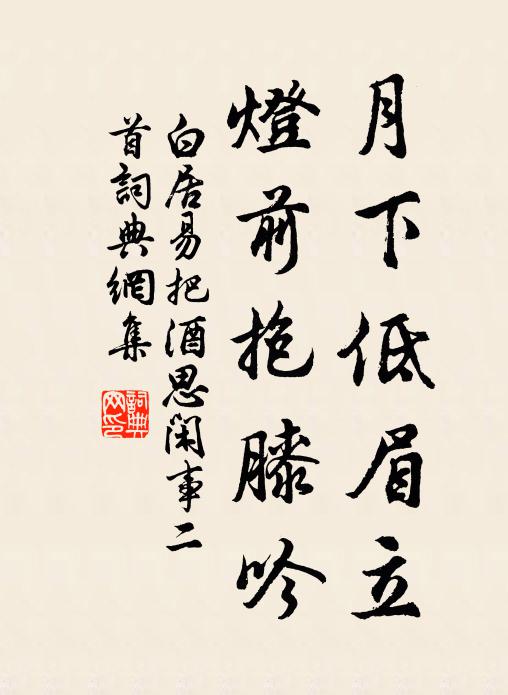 月下低眉立
燈前抱膝吟
白居易把酒思閑事二
首詞典網集
詞典
网印